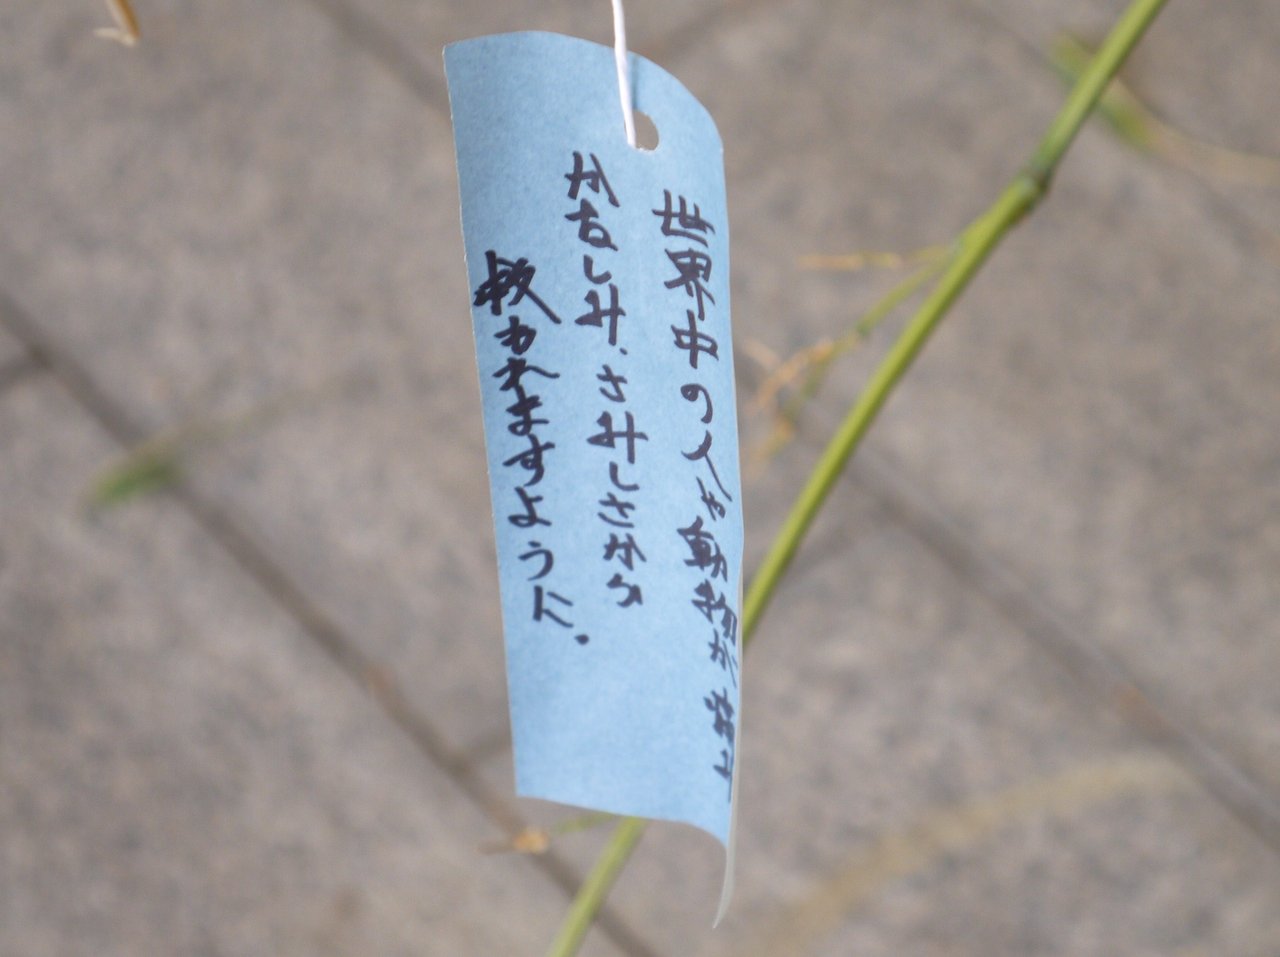 世界中の人や動物が
かなしみ、さみしさから
救われますように.